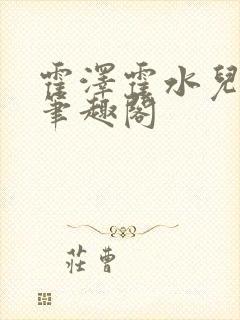 霍澤霍水兒
筆趣閣
莊曹